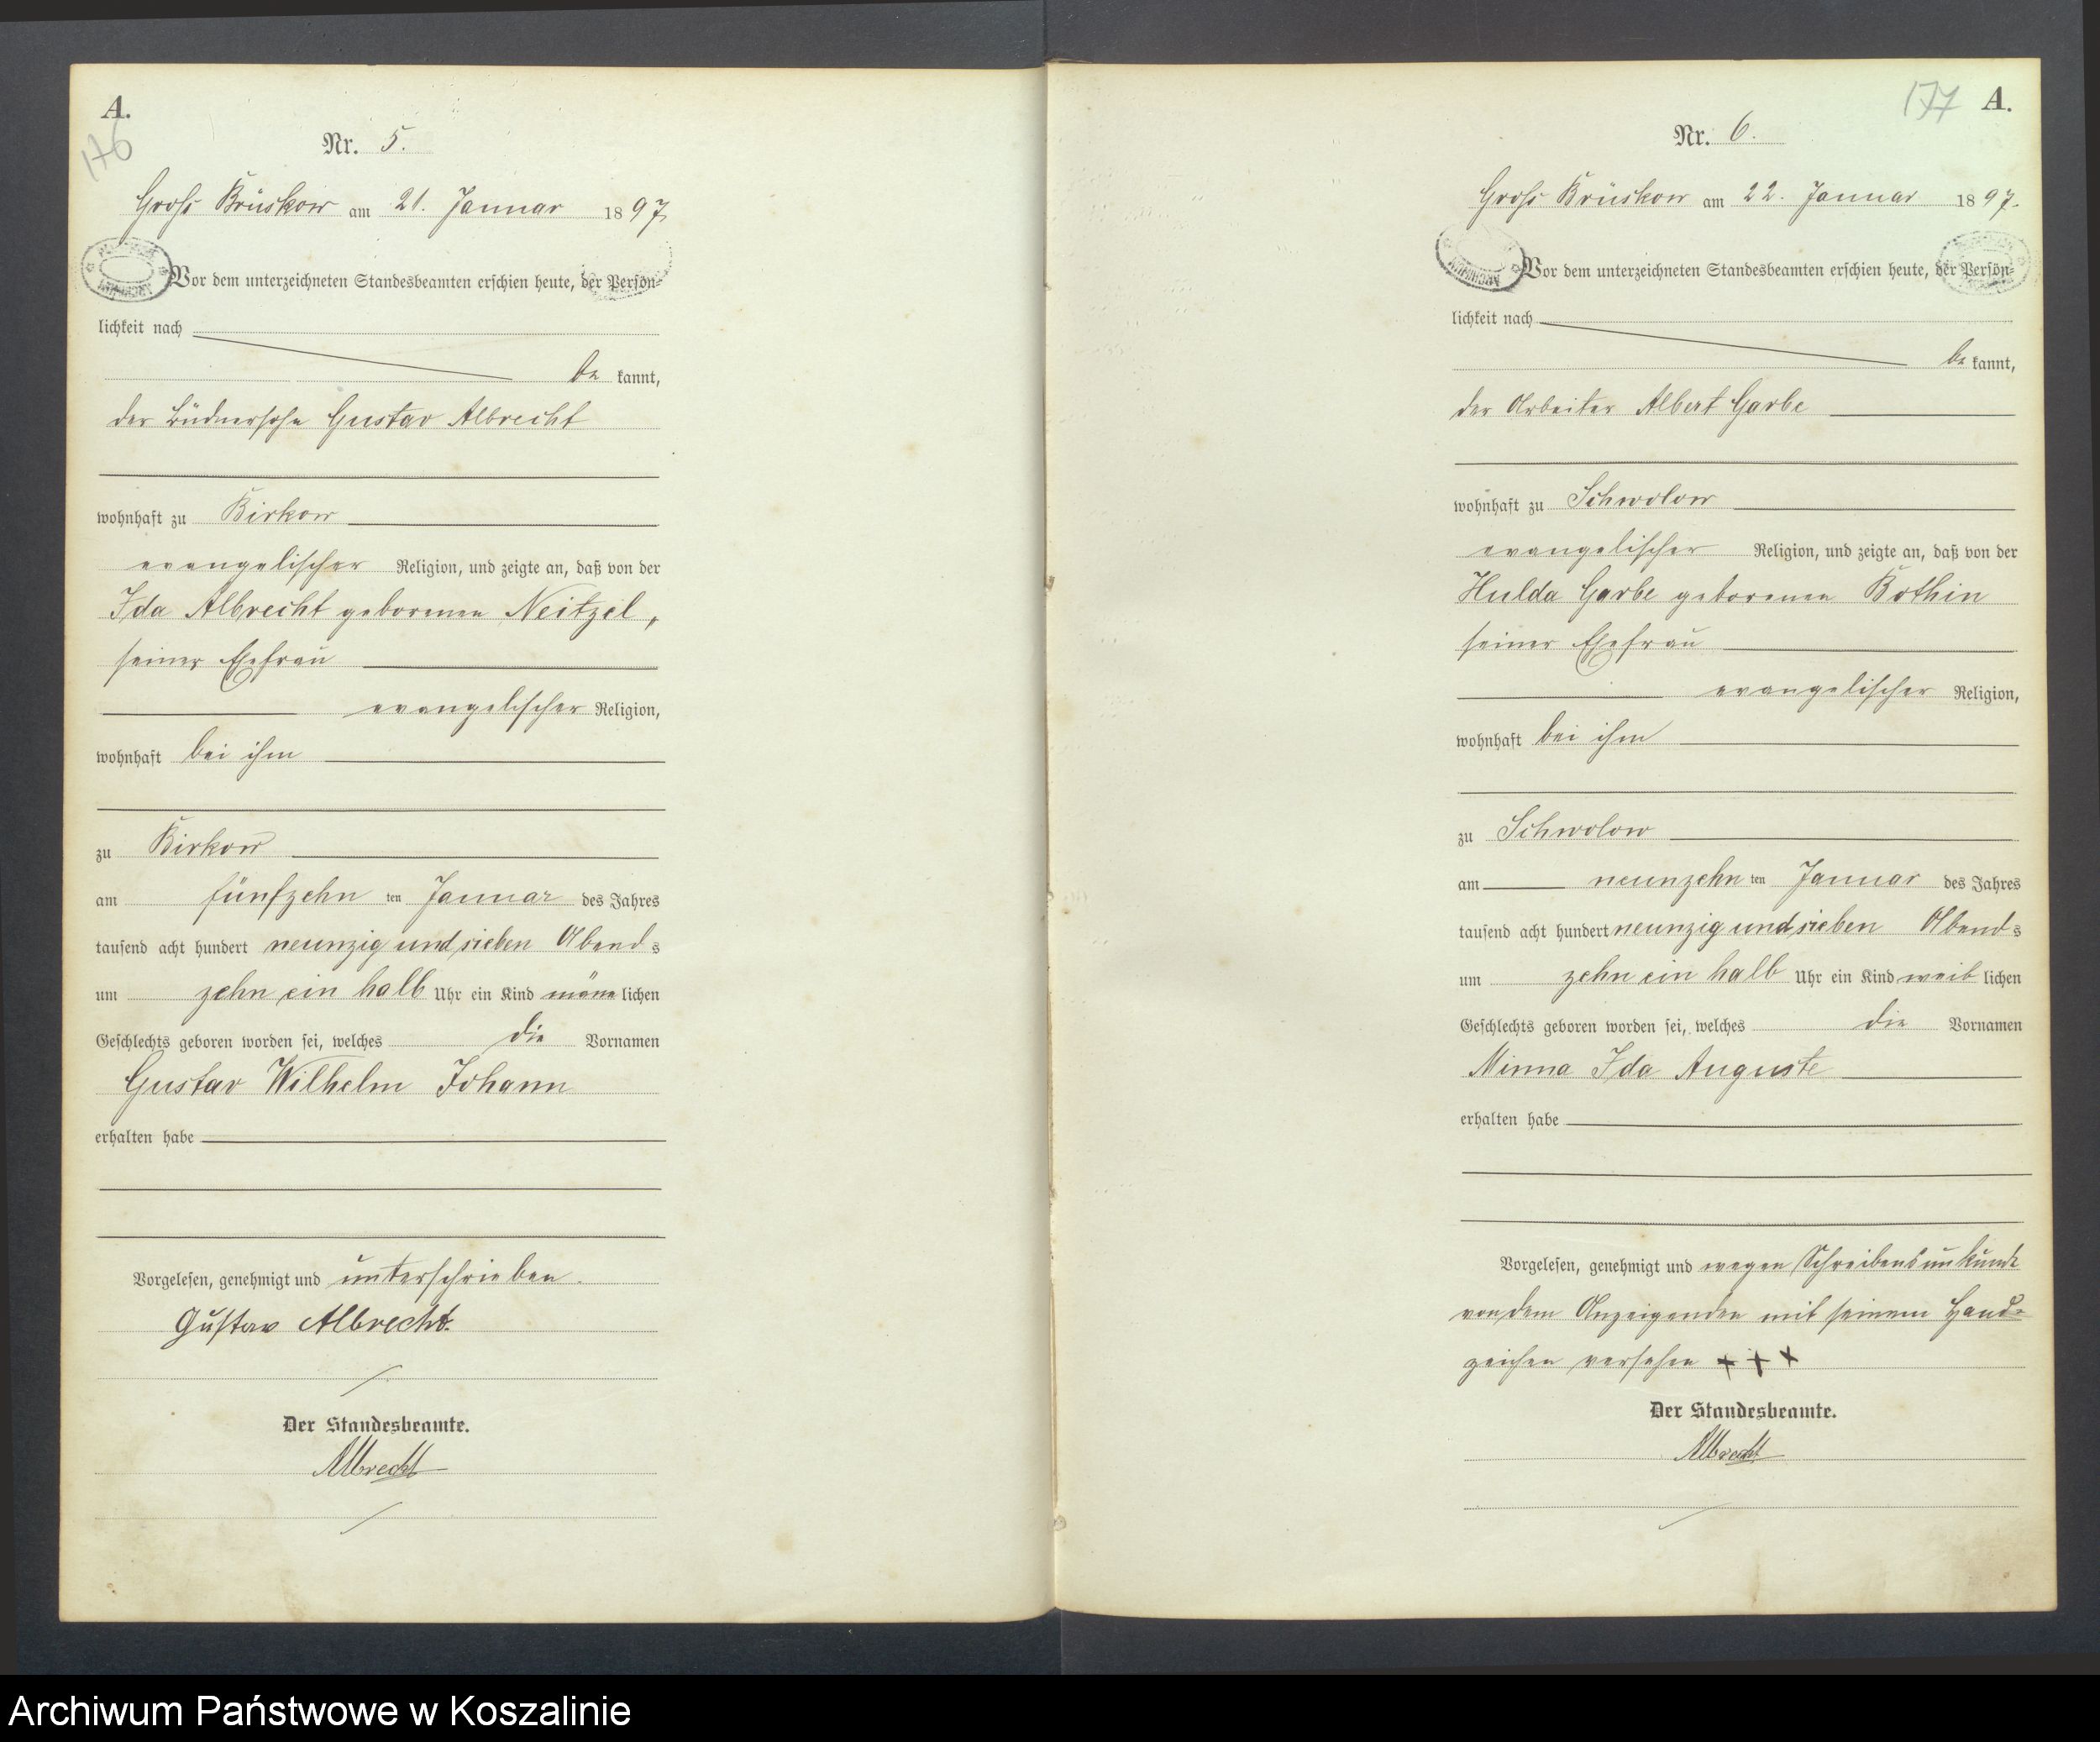 A.
176
Nr. 5.
Groß Brüskow am 21. Januar 1897.
Vor dem unterzeichneten Standesbeamten erschien heute, der Persön-
lichkeit nach
be kannt,
der Büdnersohn Gustav Albrecht
wohnhaft zu Birkow
evangelischer Religion, und zeigte an, daß von der
Ida Albrecht geborenen Neitzel,
seiner Ehefrau
evangelischer Religion,
wohnhaft bei ihm
zu Birkow
am fünfzehn ten Januar des Jahres
tausend acht hundert neunzig und sieben Abend s
um zehn ein halb Uhr ein Kind männ lichen
Geschlechts geboren worden sei, welches die Vornamen
Gustav Wilhelm Johann
erhalten habe
Vorgelesen, genehmigt und unterschrieben.
Gustav Albrecht.
Der Standesbeamte.
Albrecht
177 A.
Nr. 6.
Groß Brüskow am 22. Januar 1897.
Vor dem unterzeichneten Standesbeamten erschien heute, der Persön-
lichkeit nach
be kannt,
der Arbeiter Albert Garbe
wohnhaft zu Schwolow
evangelischer Religion, und zeigte an, daß von der
Hulda Garbe geborenen Bothin
seiner Ehefrau
evangelischer Religion,
wohnhaft bei ihm
zu Schwolow
am neunzehn ten Januar des Jahres
tausend acht hundert neunzig und sieben Abend s
um zehn ein halb Uhr ein Kind weib lichen
Geschlechts geboren worden sei, welches die Vornamen
Minna Ida Auguste
erhalten habe
Vorgelesen, genehmigt und wegen Schreibensunkunde
von dem Anzeigenden mit seinem Hand-
zeichen versehen + + +
Der Standesbeamte.
Albrecht
Archiwum Państwowe w Koszalinie